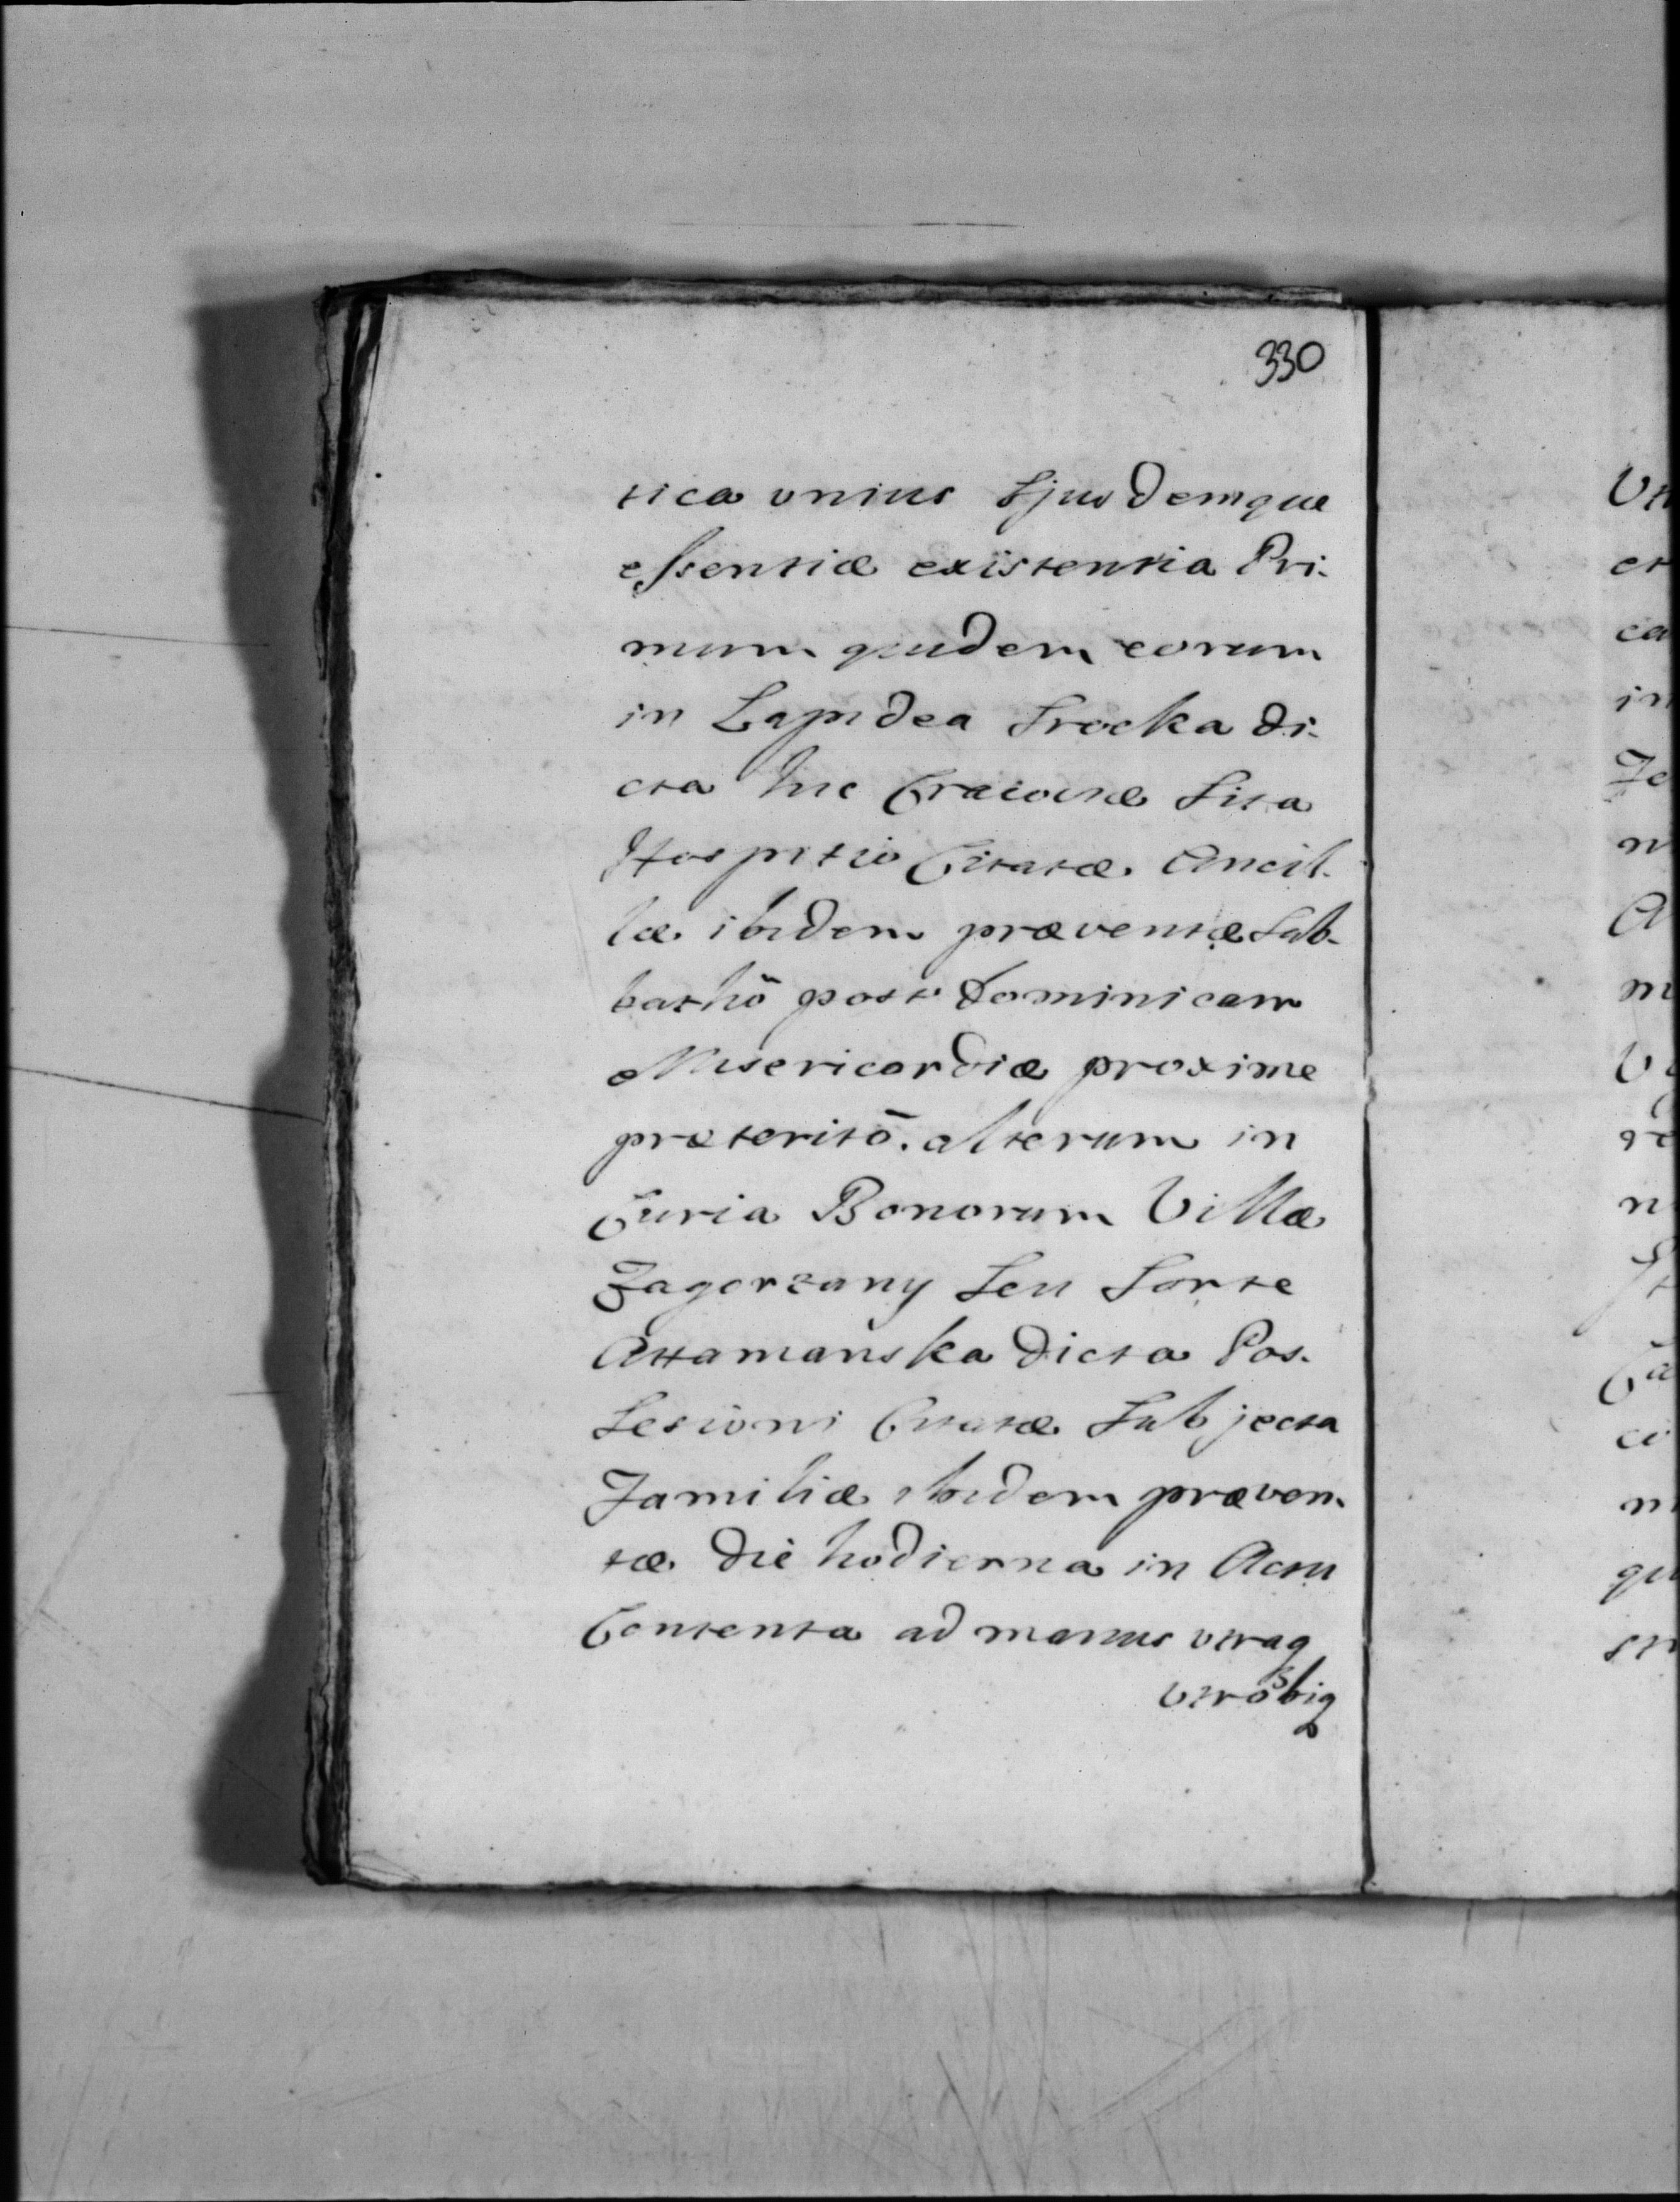 330
tica unius Ejusdemque
essentiæ existentia Pri-
mum quidem eorum
in Lapidea Srocka di-
cta hic Craioviæ Sita
Hospitio Citatæ Ancil-
læ ibidem præventæ Sab-
bathō post Dominicam
Misericordiæ proxime
præteritō. alterum in
Curia Bonorum Villæ
Zagorzany Seu Sorte
Attamanska dicta Pos-
Sesioni Citatæ Subjecta
Familiæ ibidem præven-
tæ die hodierna in Actu
Contenta ad manus utraq
utrobiq
Utt
et
ca
in
n
A
m
n
co
qu